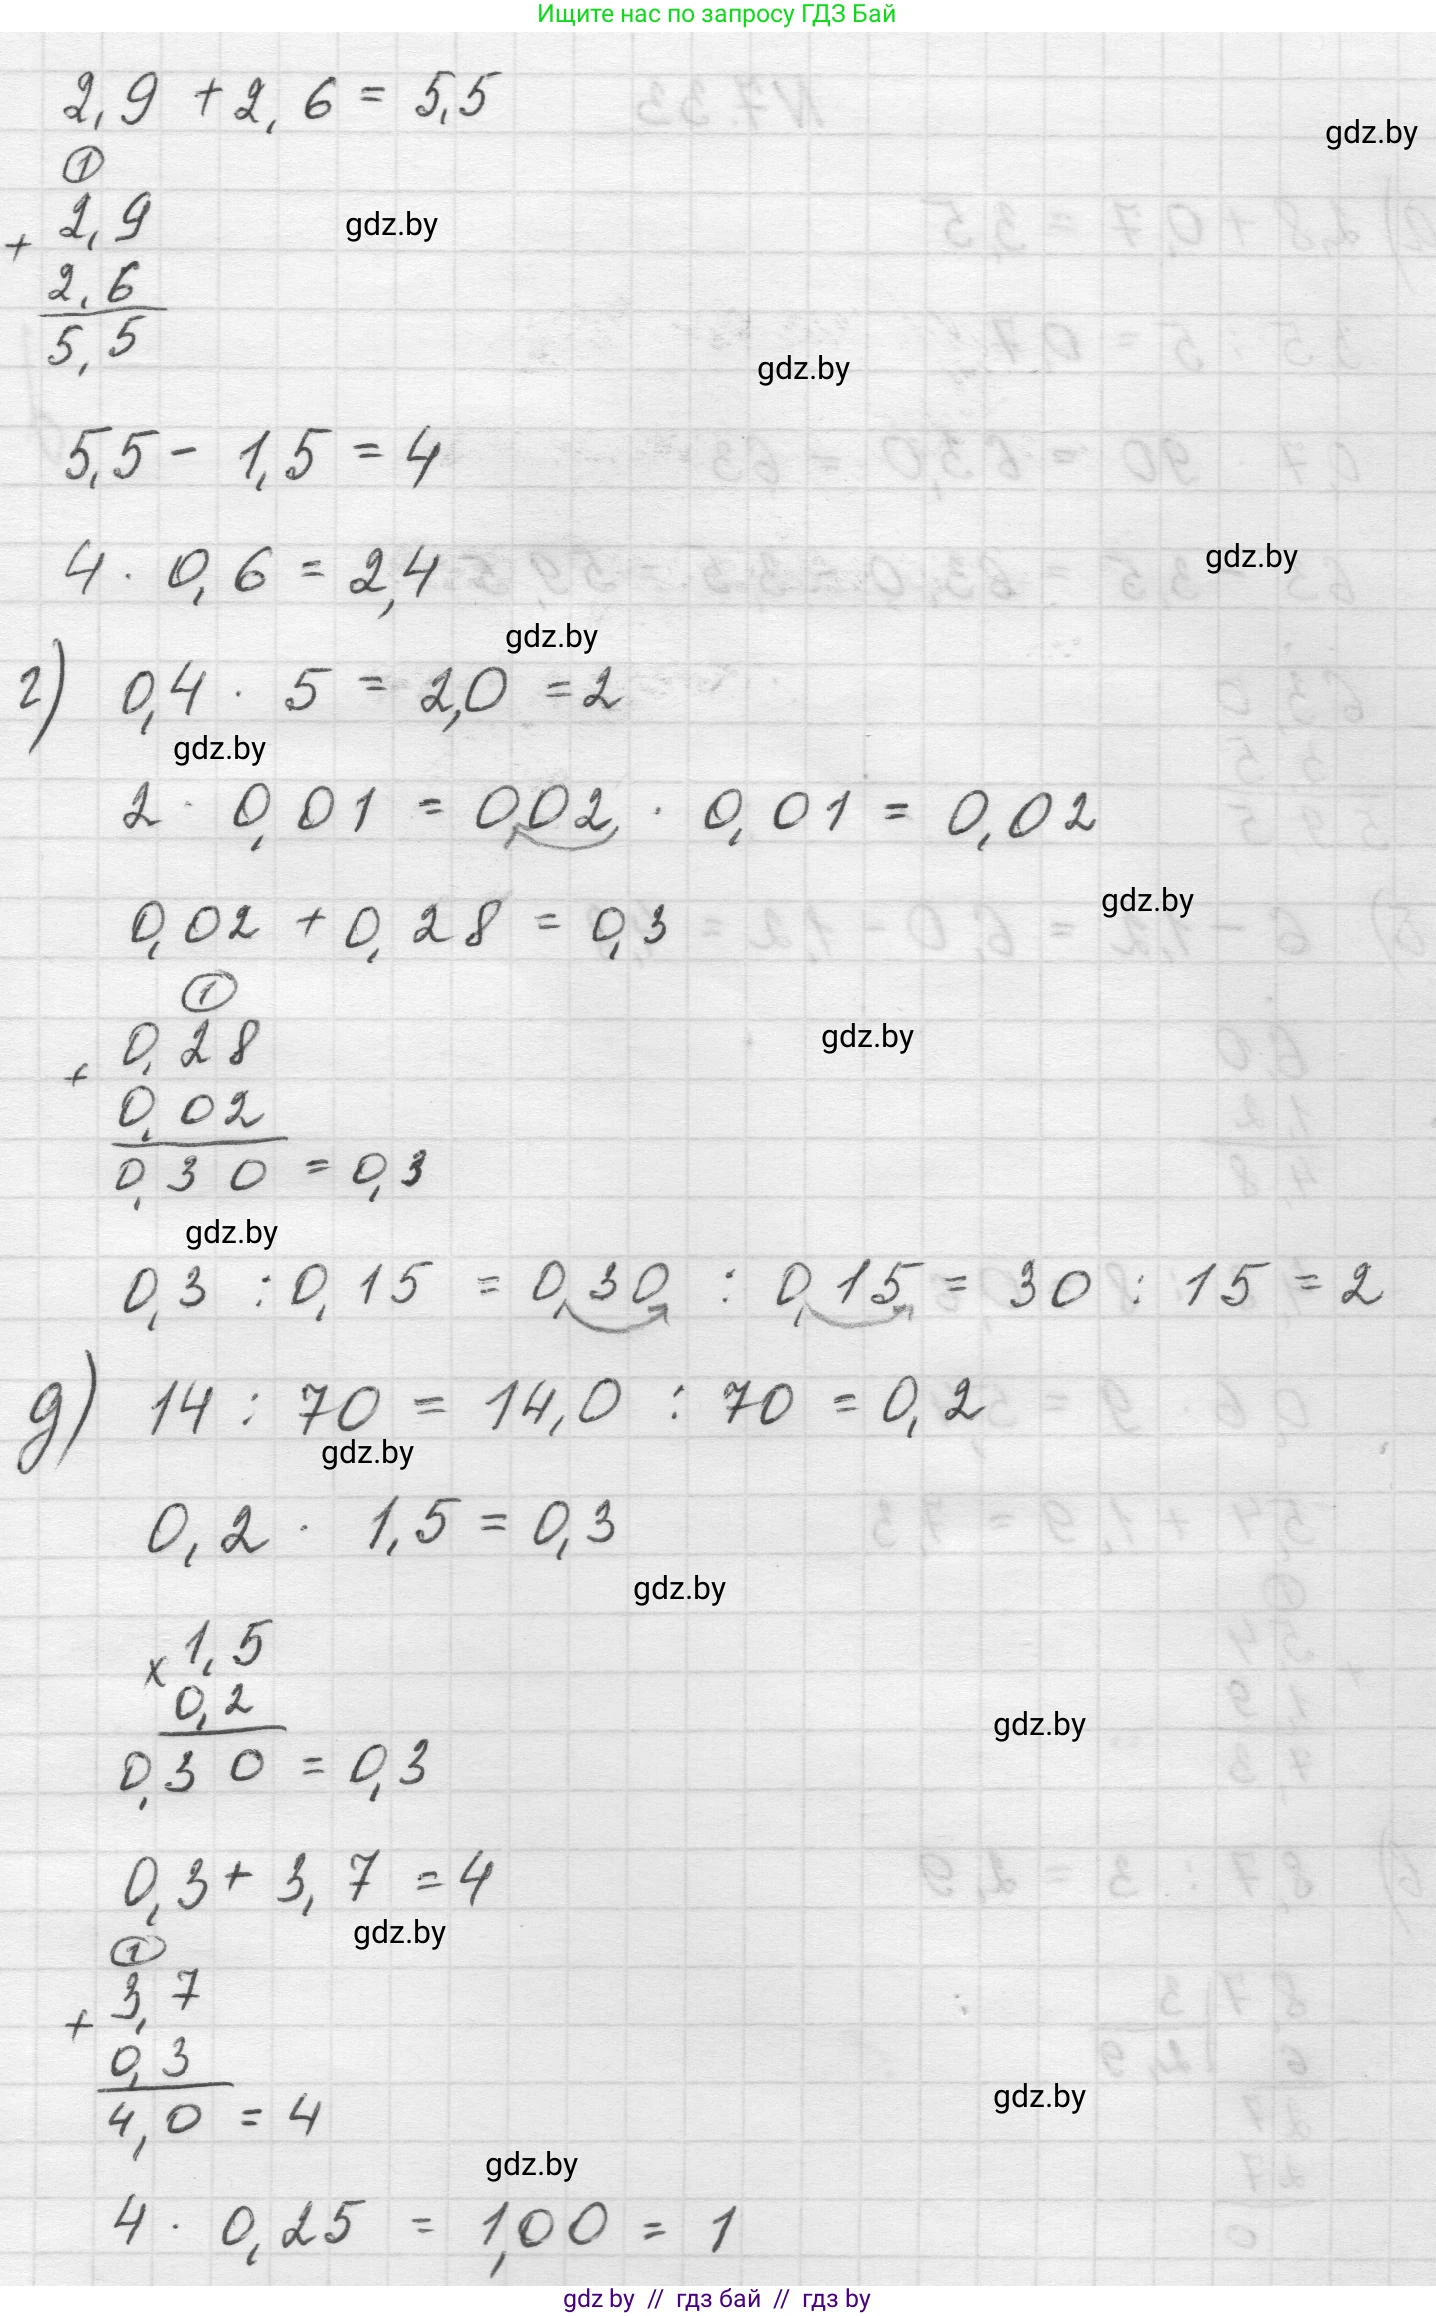 Ищите нас по запросу ГДЗ Бай
2,9 + 2,6 = 5,5
gdz.by
1
+ 2,9
gdz.by
2,6
5,5
gdz.by
5,5 - 1,5 = 4
4 · 0,6 = 2,4
gdz.by
gdz.by
г) 0,4 · 5 = 2,0 = 2
gdz.by
2 · 0,01 = 0,02 · 0,01 = 0,02
gdz.by
0,02 + 0,28 = 0,3
1
gdz.by
+ 0,28
0,02
0,30 = 0,3
gdz.by
0,3 : 0,15 = 0,30 : 0,15 = 30 : 15 = 2
д) 14 : 70 = 14,0 : 70 = 0,2
gdz.by
0,2 · 1,5 = 0,3
gdz.by
x 1,5
0,2
gdz.by
0,30 = 0,3
0,3 + 3,7 = 4
gdz.by
1
+ 3,7
0,3
gdz.by
4,0 = 4
gdz.by
4 · 0,25 = 1,00 = 1
gdz by // гдз бай // гдз by